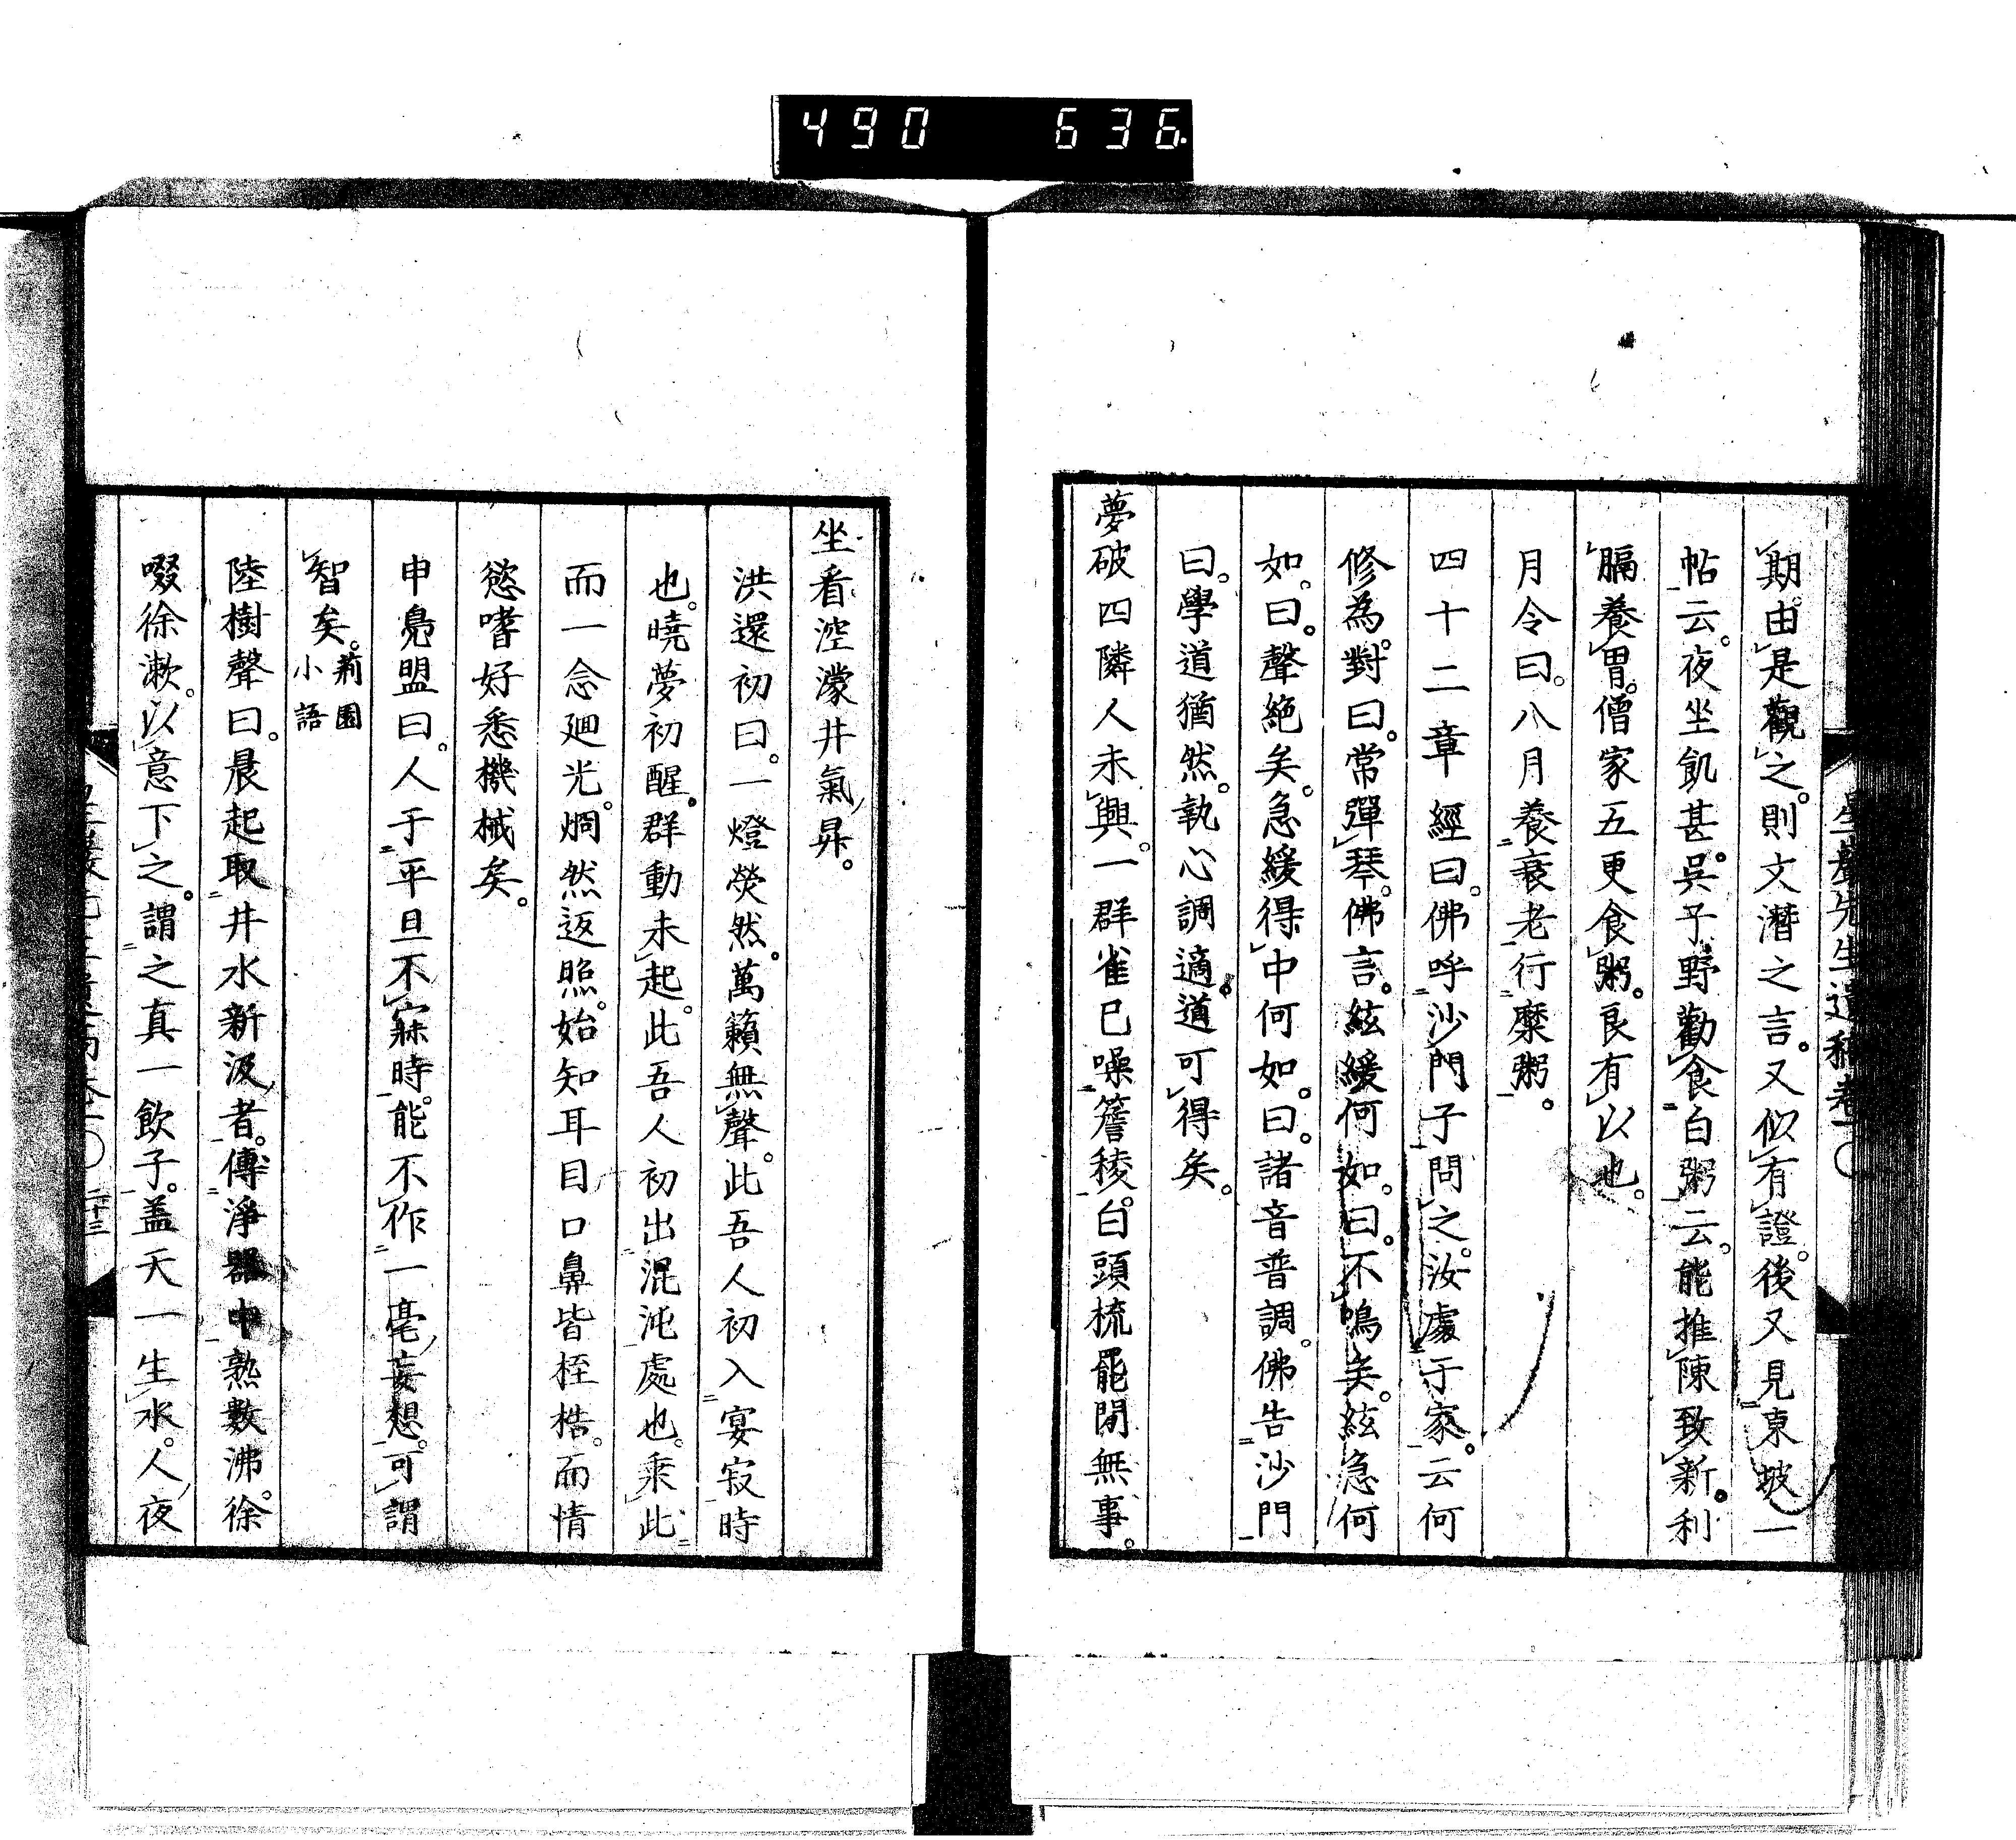 490 636
期。由是觀之。則文潛之言。又似有證。後又見東坡一
帖云。夜坐飢甚。吳子野勸食白粥云。能推陳致新。利
膈養胃。僧家五更食粥。良有以也。
月令曰。八月養衰老行糜粥。
四十二章經曰。佛呼沙門子問之。汝處于家。云何
修為。對曰。常彈琴。佛言。絃緩何如。曰。不鳴矣。絃急何
如。曰。聲絕矣。急緩得中何如。曰。諸音普調。佛告沙門
曰。學道猶然。執心調適。道可得矣。
夢破四隣人未興。一群雀已噪簷稜。白頭梳罷閒無事。
坐看涳濛井氣昇。
洪還初曰。一燈熒然。萬籟無聲。此吾人初入宴寂時
也。曉夢初醒。群動未起。此吾人初出混沌處也。乘此
而一念廻光。烱然返照。始知耳目口鼻皆桎梏。而情
慾嗜好悉機械矣。
申鳧盟曰。人于平旦不寐時。能不作一毫妄想。可謂
智矣。荊園小語
陸樹聲曰。晨起取井水新汲者。傳淨器中熟數沸。徐
啜徐漱。以意下之。謂之真一飲子。蓋天一生水。人夜